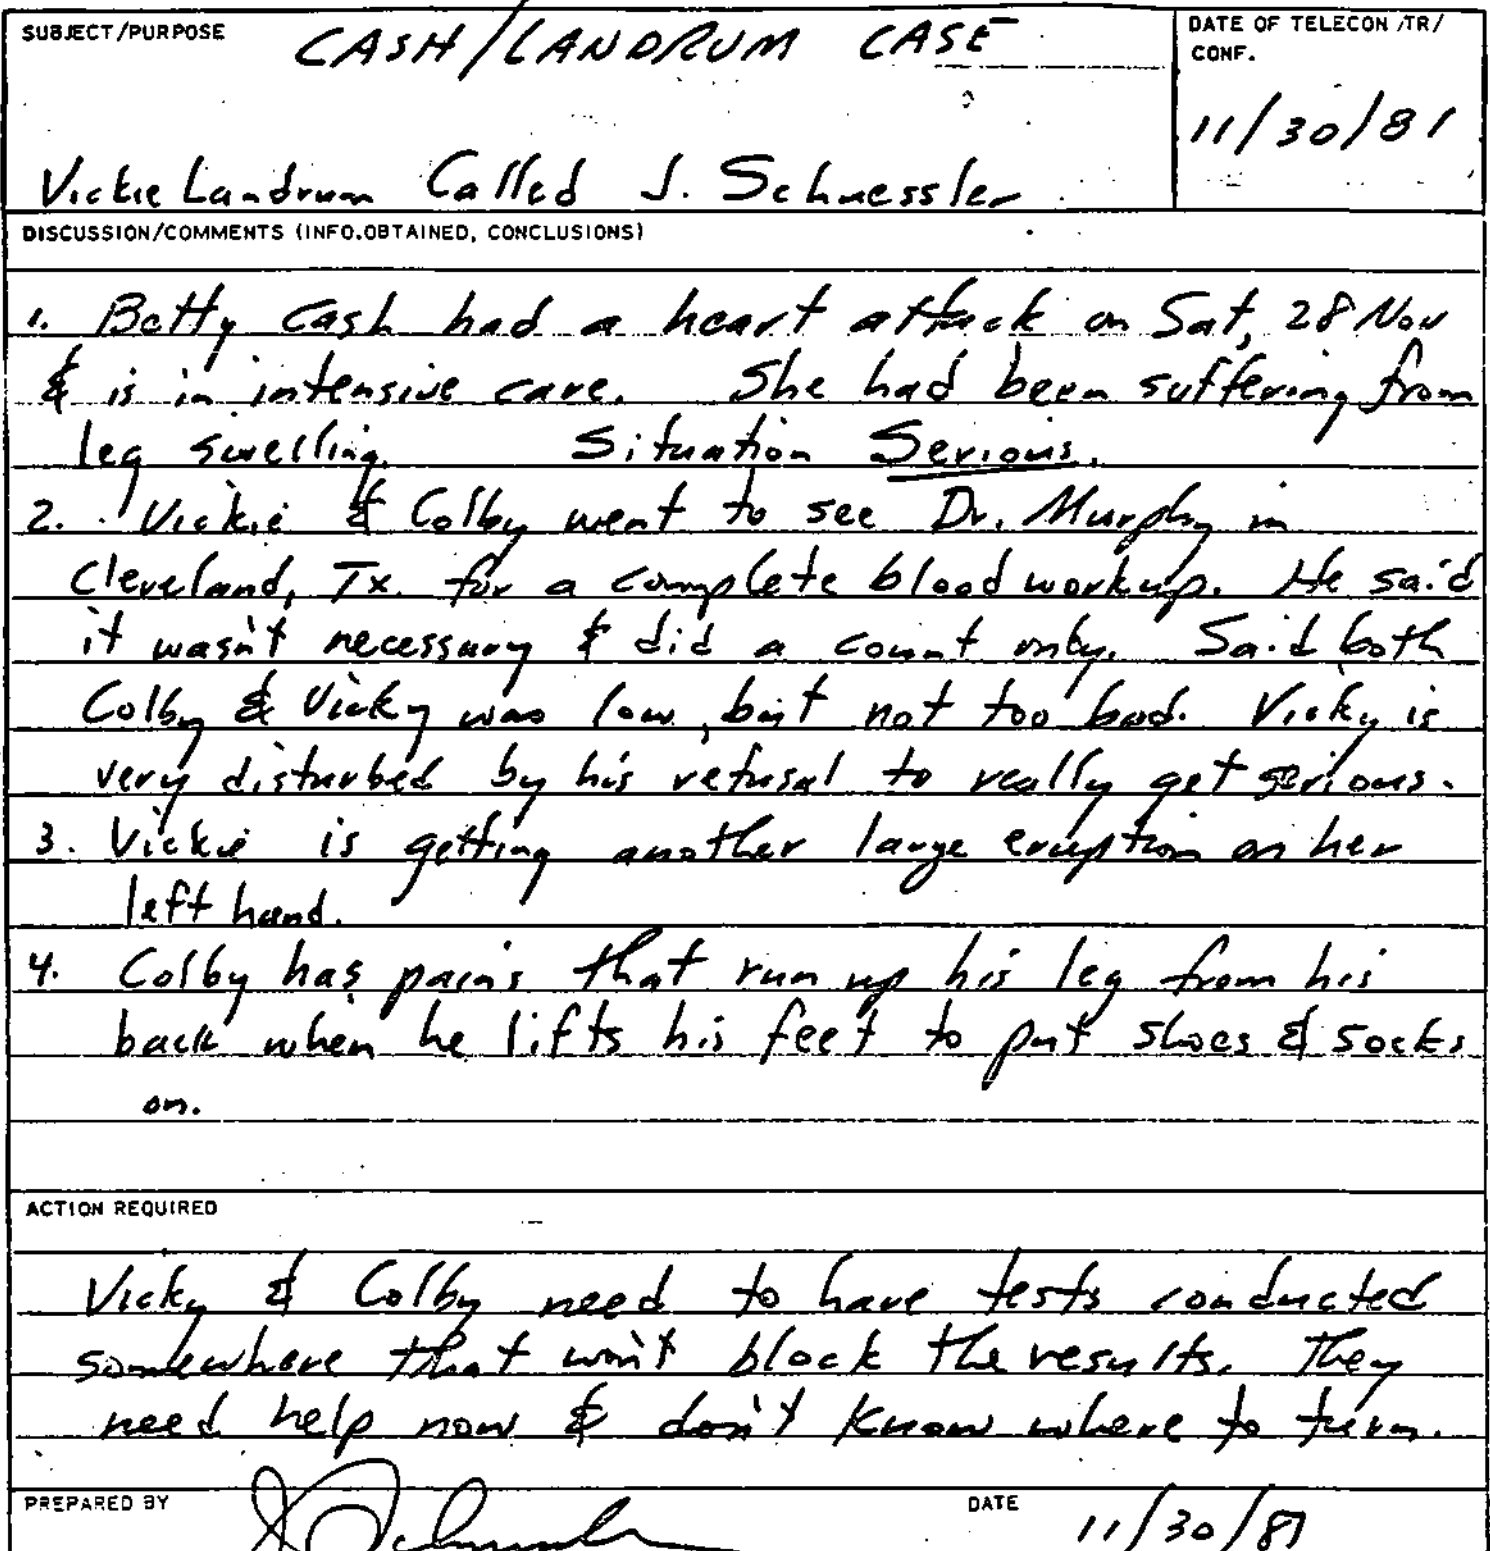 SUBJECT/PURPOSE CASH/LANDRUM CASE
DATE OF TELECON/TR/
CONF.
11/30/81
Vickie Landrum Called J. Schuessler
DISCUSSION/COMMENTS (INFO.OBTAINED, CONCLUSIONS)
1. Betty Cash had a heart attack on Sat, 28 Nov
& is in intensive care. She had been suffering from
leg swelling. Situation Serious.
2. Vickie & Colby went to see Dr. Murphy in
Cleveland, Tx. for a complete blood workup. He said
it wasn't necessary & did a count only. Said both
Colby & Vicky was low, but not too bad. Vicky is
very disturbed by his refusal to really get serious.
3. Vickie is getting another large eruption on her
left hand.
4. Colby has pains that run up his leg from his
back when he lifts his feet to put shoes & socks
on.
ACTION REQUIRED
Vicky & Colby need to have tests conducted
somewhere that won't block the results. They
need help now & don't know where to turn.
PREPARED BY J Schuessler DATE 11/30/81